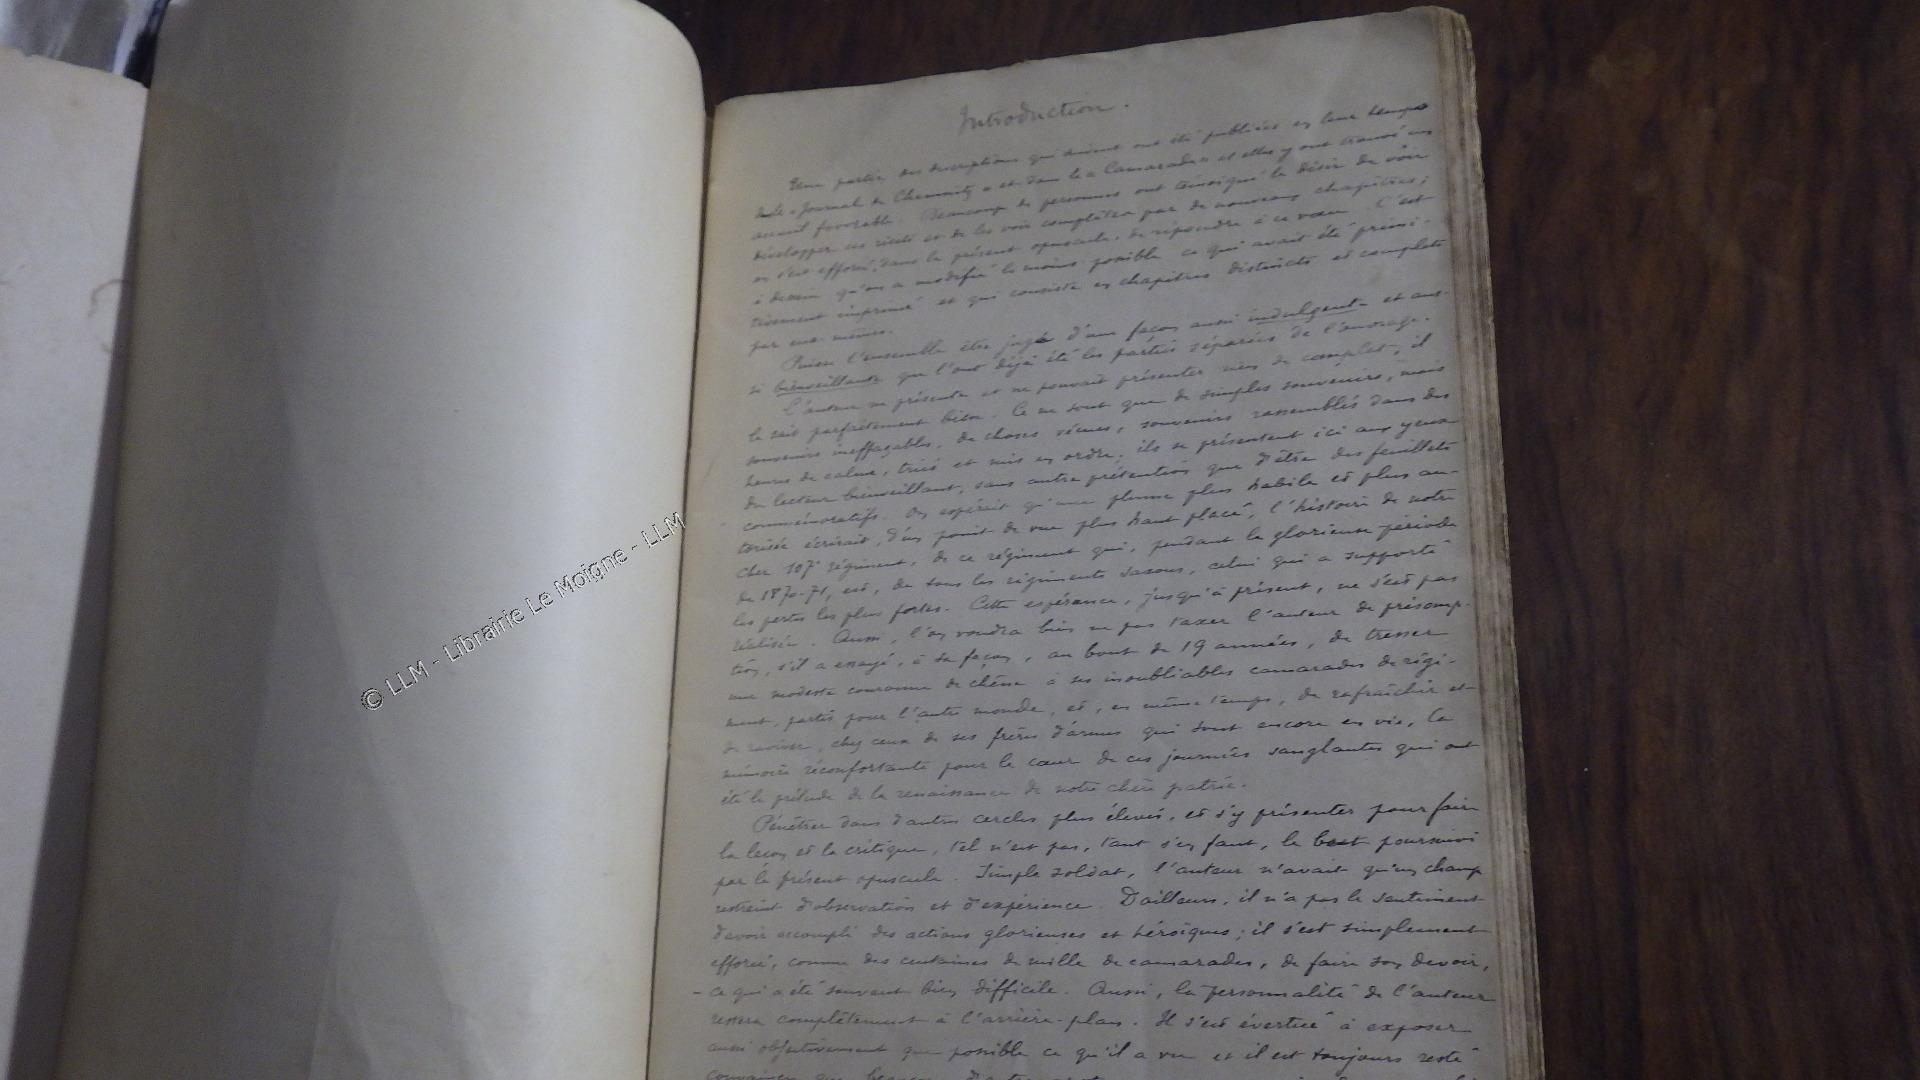 Introduction.
Une partie des descriptions qui suivent ont été publiées en leur temps
"Journal de Chemnitz" et dans le "Camarade" et elles y ont trouvé un
accueil favorable. Beaucoup de personnes ont témoigné le désir de voir
développer ces récits et de les voir compléter par de nouveaux chapitres;
on s'est efforcé, dans le présent opuscule, de répondre à ce vœu. C'est
à dessein qu'on a modifié le moins possible ce qui avait été primi-
tivement imprimé et qui consiste en chapitres distincts et complets
par eux-mêmes.
Puisse l'ensemble être jugé d'une façon aussi indulgente et aus-
si bienveillante que l'ont déjà été les parties séparées de l'ouvrage.
L'auteur ne présente et ne pouvait présenter rien de complet; il
le sait parfaitement bien. Ce ne sont que de simples souvenirs, mais
souvenirs ineffaçables, de choses vécues, souvenirs rassemblés dans des
heures de calme, triés et mis en ordre; ils se présentent ici aux yeux
du lecteur bienveillant, sans autre prétention que d'être des feuillets
commémoratifs. On espérait qu'une plume plus habile et plus au-
torisée écrirait, d'un point de vue plus haut placé, l'histoire de notre
cher 107e régiment, de ce régiment qui, pendant la glorieuse période
de 1870-71, est, de tous les régiments saxons, celui qui a supporté
les pertes les plus fortes. Cette espérance, jusqu'à présent, ne s'est pas
réalisée. Aussi, l'on voudra bien ne pas taxer l'auteur de présomp-
tion, s'il a essayé, à sa façon, au bout de 19 années, de tresser
une modeste couronne de chêne à ses inoubliables camarades de régi-
ment, partis pour l'autre monde, et, en même temps, de rafraîchir et
de raviver, chez ceux de ses frères d'armes qui sont encore en vie, la
mémoire réconfortante pour le cœur de ces journées sanglantes qui ont
été le prélude de la renaissance de notre chère patrie.
Pénétrer dans d'autres cercles plus élevés, et s'y présenter pour faire
la leçon et la critique, tel n'est pas, tant s'en faut, le but poursuivi
par le présent opuscule. Simple soldat, l'auteur n'avait qu'un champ
restreint d'observation et d'expérience. D'ailleurs, il n'a pas le sentiment
d'avoir accompli des actions glorieuses et héroïques; il s'est simplement
efforcé, comme des centaines de mille de camarades, de faire son devoir,
- ce qui a été souvent bien difficile. Aussi, la personnalité de l'auteur
restera complètement à l'arrière-plan. Il s'est évertué à exposer
aussi objectivement que possible ce qu'il a vu et il est toujours resté
convaincu que
© LLM - Librairie Le Moigne - LLM